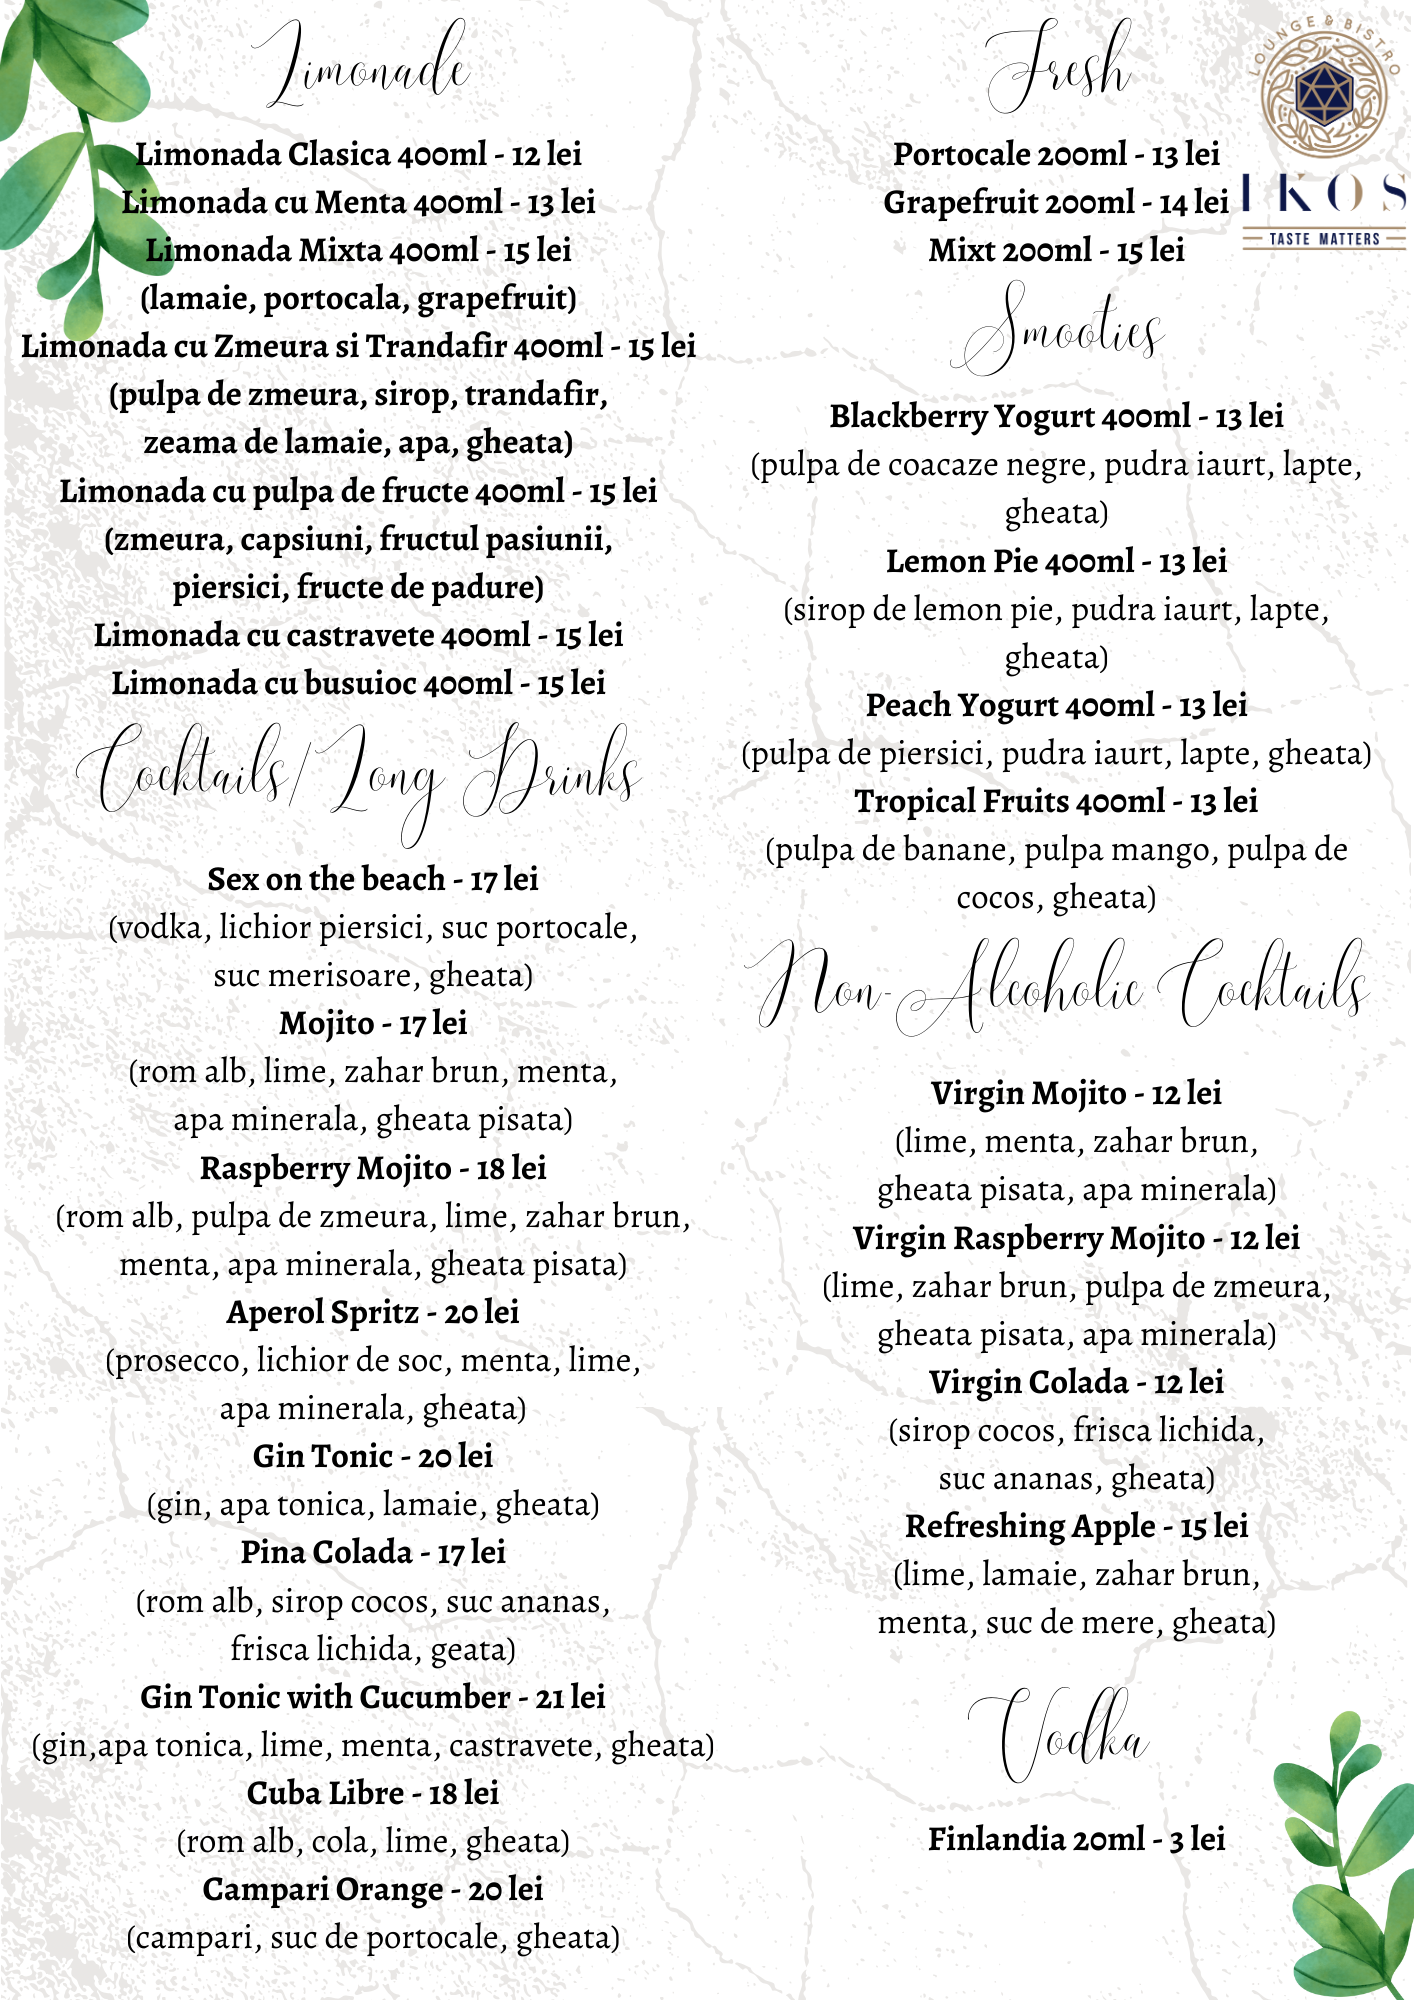 Limonade
Limonada Clasica 400ml - 12 lei
Limonada cu Menta 400ml - 13 lei
Limonada Mixta 400ml - 15 lei
(lamaie, portocala, grapefruit)
Limonada cu Zmeura si Trandafir 400ml - 15 lei
(pulpa de zmeura, sirop, trandafir,
zeama de lamaie, apa, gheata)
Limonada cu pulpa de fructe 400ml - 15 lei
(zmeura, capsiuni, fructul pasiunii,
piersici, fructe de padure)
Limonada cu castravete 400ml - 15 lei
Limonada cu busuioc 400ml - 15 lei
Cocktails/Long Drinks
Sex on the beach - 17 lei
(vodka, lichior piersici, suc portocale,
suc merisoare, gheata)
Mojito - 17 lei
(rom alb, lime, zahar brun, menta,
apa minerala, gheata pisata)
Raspberry Mojito - 18 lei
(rom alb, pulpa de zmeura, lime, zahar brun,
menta, apa minerala, gheata pisata)
Aperol Spritz - 20 lei
(prosecco, lichior de soc, menta, lime,
apa minerala, gheata)
Gin Tonic - 20 lei
(gin, apa tonica, lamaie, gheata)
Pina Colada - 17 lei
(rom alb, sirop cocos, suc ananas,
frisca lichida, geata)
Gin Tonic with Cucumber - 21 lei
(gin,apa tonica, lime, menta, castravete, gheata)
Cuba Libre - 18 lei
(rom alb, cola, lime, gheata)
Campari Orange - 20 lei
(campari, suc de portocale, gheata)
Fresh
Portocale 200ml - 13 lei
Grapefruit 200ml - 14 lei
Mixt 200ml - 15 lei
LOUNGE & BISTRO
IKOS
TASTE MATTERS
Smooties
Blackberry Yogurt 400ml - 13 lei
(pulpa de coacaze negre, pudra iaurt, lapte,
gheata)
Lemon Pie 400ml - 13 lei
(sirop de lemon pie, pudra iaurt, lapte,
gheata)
Peach Yogurt 400ml - 13 lei
(pulpa de piersici, pudra iaurt, lapte, gheata)
Tropical Fruits 400ml - 13 lei
(pulpa de banane, pulpa mango, pulpa de
cocos, gheata)
Non-Alcoholic Cocktails
Virgin Mojito - 12 lei
(lime, menta, zahar brun,
gheata pisata, apa minerala)
Virgin Raspberry Mojito - 12 lei
(lime, zahar brun, pulpa de zmeura,
gheata pisata, apa minerala)
Virgin Colada - 12 lei
(sirop cocos, frisca lichida,
suc ananas, gheata)
Refreshing Apple - 15 lei
(lime, lamaie, zahar brun,
menta, suc de mere, gheata)
Vodka
Finlandia 20ml - 3 lei